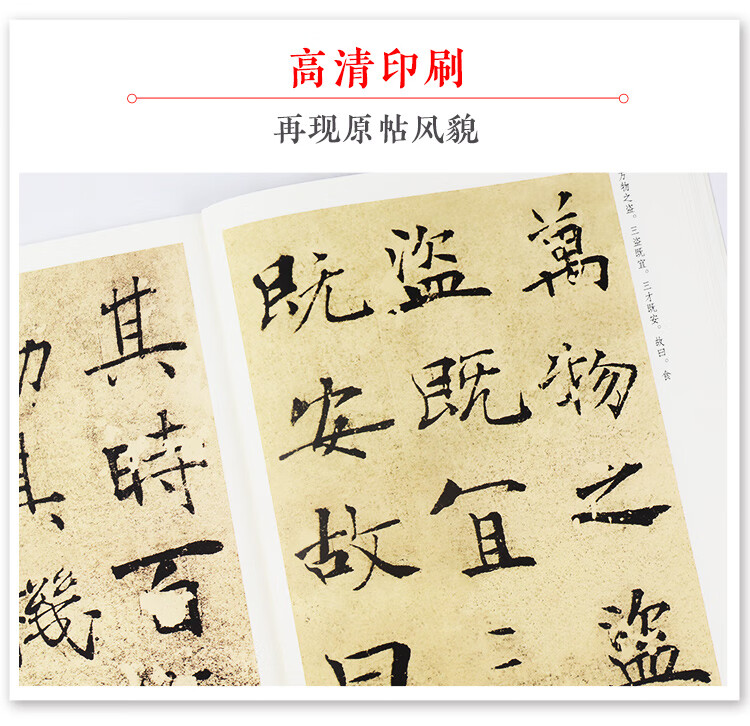 高清印刷
再现原帖风貌
万物之盗。三盗既宜。三才既安。故曰。食
萬物之盜
盜既宜三
既安故曰
其時百
其機